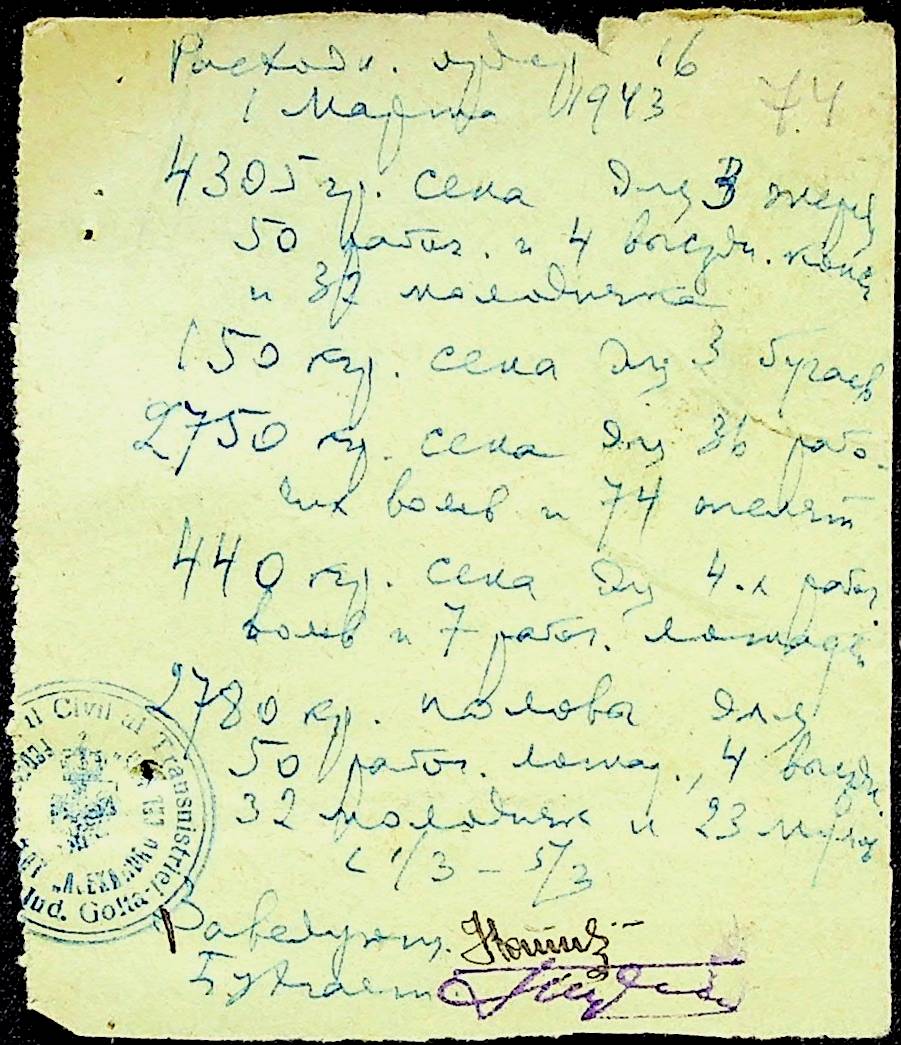 Расходн. ордер 16
1 Марта 1943 74
4305 гр. сена для 3 жереб
50 рабоч. и 4 выездн. коней
и 32 молодняка
150 кгр. сена для 3 бугаев
2750 кгр. сена для 36 рабо-
чих волов и 74 телят
440 кгр. сена для 4-х рабоч
волов и 7 рабоч. лошадей
2780 кгр. полова для
50 рабоч. лошад., 4 выездн
32 молодняк и 23
с 1/3 – 5/3
Заведующ.
Бухгалт.
Civil al Transnistriei
Jud. Golta